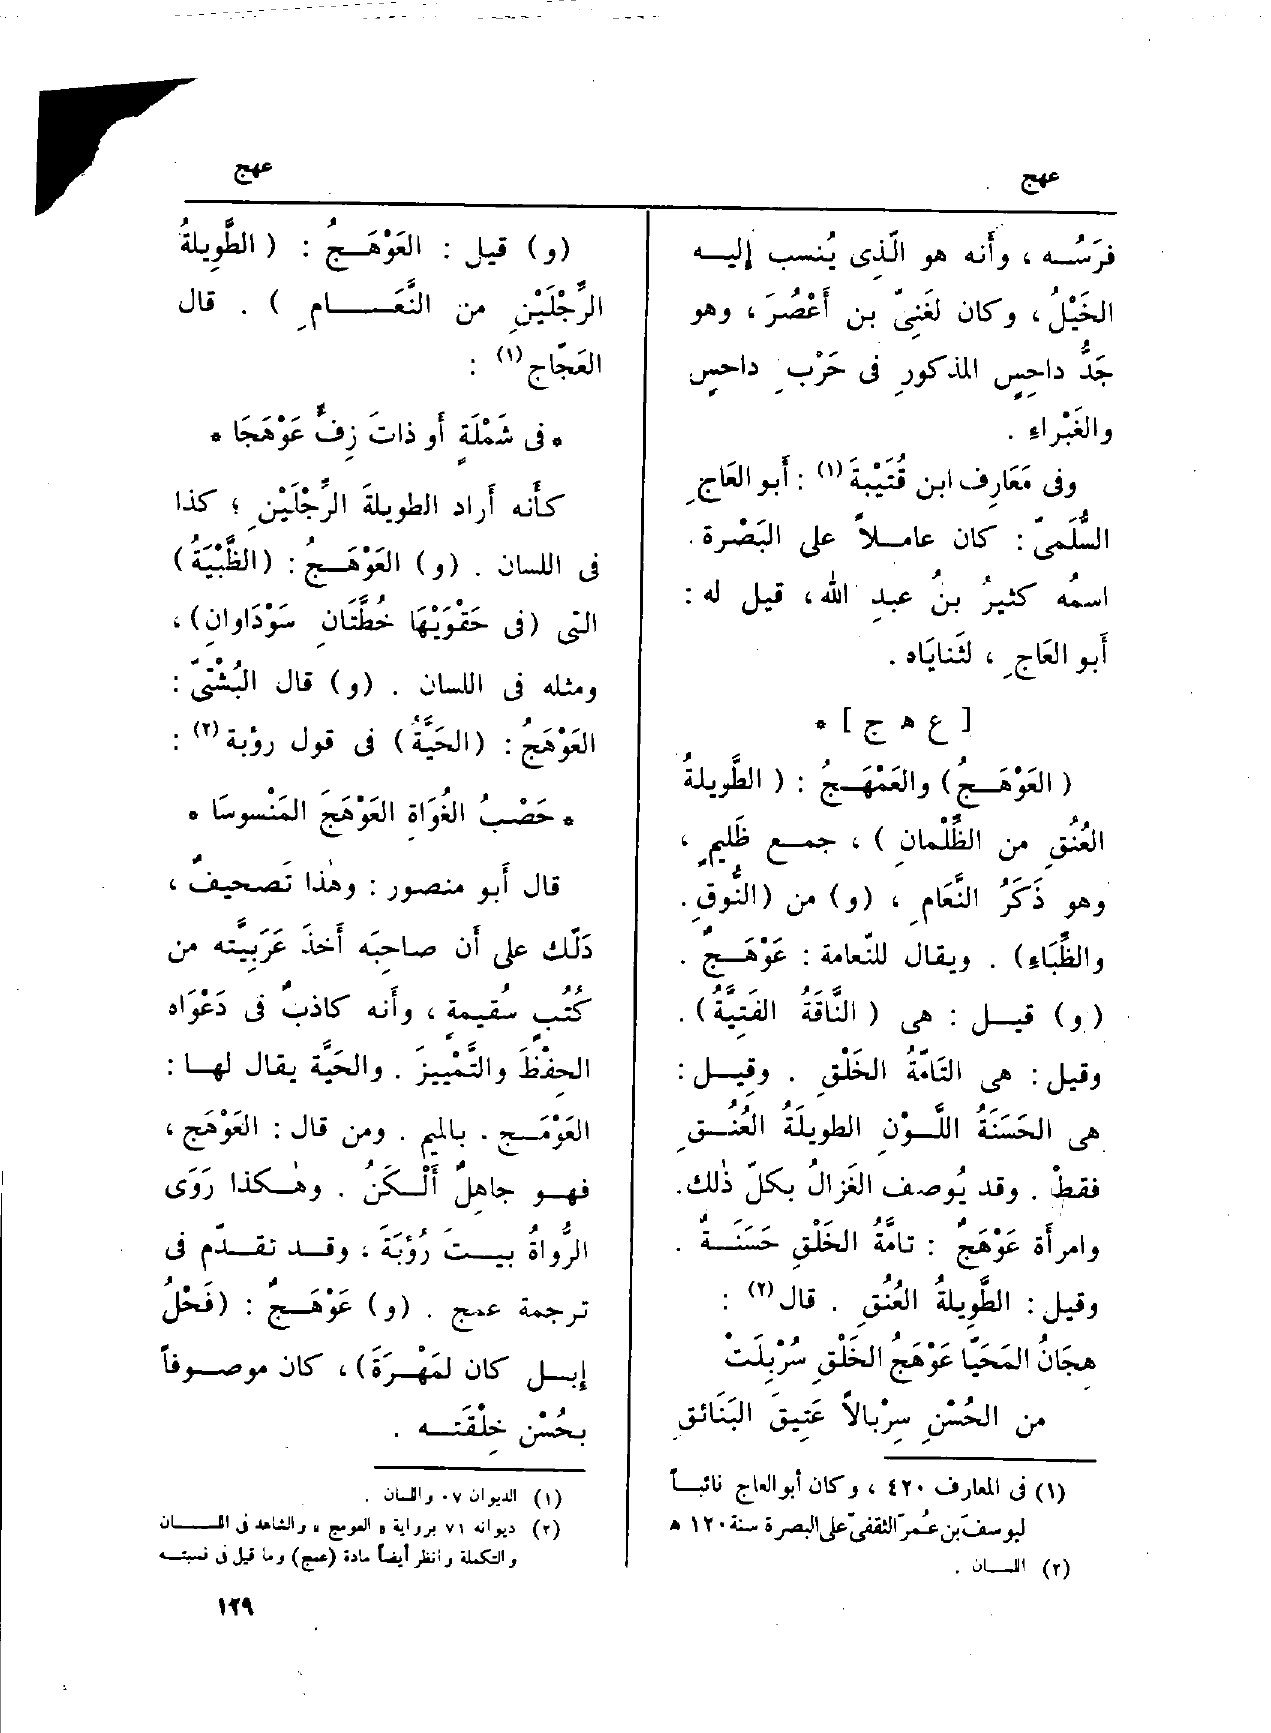 عهج
عهج
فرَسُه ، وأنه هو الّذى يُنسب إليه
الخَيْلُ ، وكان لغَنِىّ بن أَعْصُرَ ، وهو
جَدُّ داحِسٍ المذكورِ فى حَرْبِ داحسٍ
والغَبْراء .
وفى مَعَارِف ابن قُتَيْبة (١) : أبو العَاجِ
السُّلَمىّ : كان عاملاً على البَصْرة .
اسمُه كَثيرُ بنُ عبدِ الله ، قيل له :
أَبو العَاجِ ، لثَنايَاه .
[ ع ه ج ] *
( العَوْهَجُ ) والعَمْهَجُ : ( الطَّوِيلةُ
العُنُقِ من الظُّلْمانِ ) ، جمع ظَلِيمٍ ،
وهو ذَكَرُ النَّعَامِ ، (و) من (النُّوقِ .
والظِّبَاءِ) . ويقال للنّعامة : عَوْهَجٌ .
(و) قيل : هى ( النَّاقَةُ الفَتِيَّةُ ) .
وقيل : هى التَّامّةُ الخَلْقِ . وقيل :
هى الحَسَنَةُ اللَّوْنِ الطويلَةُ العُنُقِ
فقطْ . وقد يُوصف الغَزالُ بكلّ ذٰلك .
وامرأَة عَوْهَجٌ : تامَّةُ الخَلْقِ حَسَنَةٌ .
وقيل : الطَّوِيلةُ العُنُقِ . قال (٢) :
هِجَانُ المُحَيَّا عَوْهَجُ الخَلْقِ سُرْبِلَتْ
من الحُسْنِ سِرْبالاً عَتِيقَ البَنَائقِ
(١) فى المعارف ٤٢٠ ، وكان أبو العاج نائباً
ليوسف بن عُمر الثقفىّ على البصرة سنة ١٢٠ ه
(٢) اللسان .
(و) قيل : العَوْهَجُ : ( الطَّوِيلةُ
الرِّجْلَيْنِ من النَّعَامِ ) . قال
العَجّاج (١) :
* فى شَمْلَةٍ أو ذاتَ زِفٍّ عَوْهَجَا *
كأنه أراد الطويلةَ الرِّجْلَيْنِ ؛ كذا
فى اللسان . (و) العَوْهَجُ : (الظَّبْيَةُ)
التى (فى حَقْوَيْهَا خُطَّتَانِ سَوْدَاوانِ) ،
ومثله فى اللسان . (و) قال البُشْتىّ :
العَوْهَجُ : (الحَيَّةُ) فى قول رؤبة (٢) :
* حَصْبَ الغُوَاةِ العَوْهَجَ المَنْسوسَا *
قال أَبو منصور : وهٰذا تَصحيفٌ ،
دَلّك على أن صاحِبَه أَخذَ عَرَبِيَّته من
كُتُبٍ سُقيمةٍ ، وأنه كاذبٌ فى دَعْوَاه
الحِفْظَ والتَّمْييزَ . والحَيَّة يقال لها :
العَوْمَج . بالميم . ومن قال : العَوْهَج ،
فهو جاهلٌ أَلْكَنُ . وهٰكذا رَوَى
الرُّواةُ بيتَ رُؤبَةَ ، وقد تقدّم فى
ترجمة عمج . (و) عَوْهَجٌ : (فَحْلُ
إبل كان لمَهْرَةَ) ، كان موصوفاً
بحُسْن خِلْقَته .
(١) الديوان ٠٧ واللسان .
(٢) ديوانه ٧١ برواية « العومج » والشاهد فى اللسان
والتكملة وانظر أيضاً مادة (عمج) وما قيل فى نسبته
١٢٩